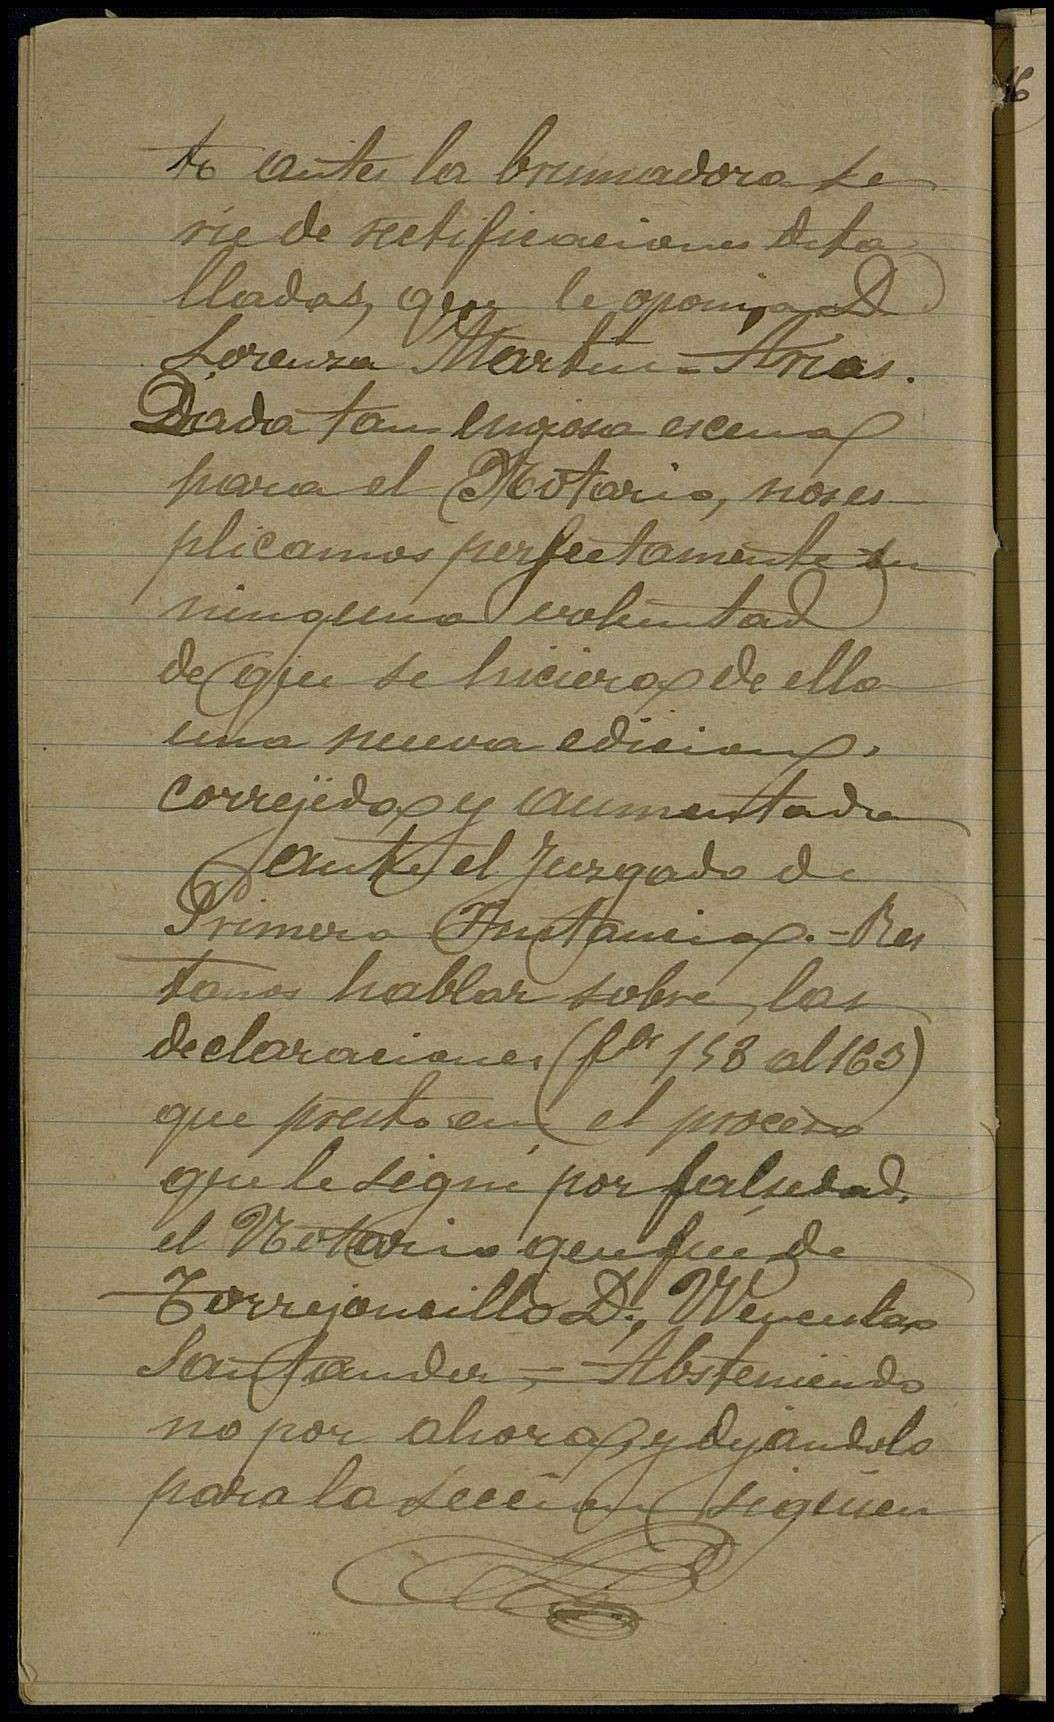 to ante la brumadora se
rie de rectificaciones deta
lladas, que le oponia D
Lorenza Martin=Arias.
Dada tan enojosa escena
para el Notario, nos es
plicamos perfectamente su
ninguna voluntad
de que se hiciera de ella
una nueva edicion,
correjida y aumentada
ante el Juzgado de
Primera Instancia.-Res
tanos hablar sobre las
declaraciones (fls 158 al 163)
que prestó en el proceso
que le seguí por falsedad,
el Notario que fué de
Torrejoncillo D. Wencesl
Santander,=Absteniendo
no por ahora, y dejandolo
para la seccion siguien
16